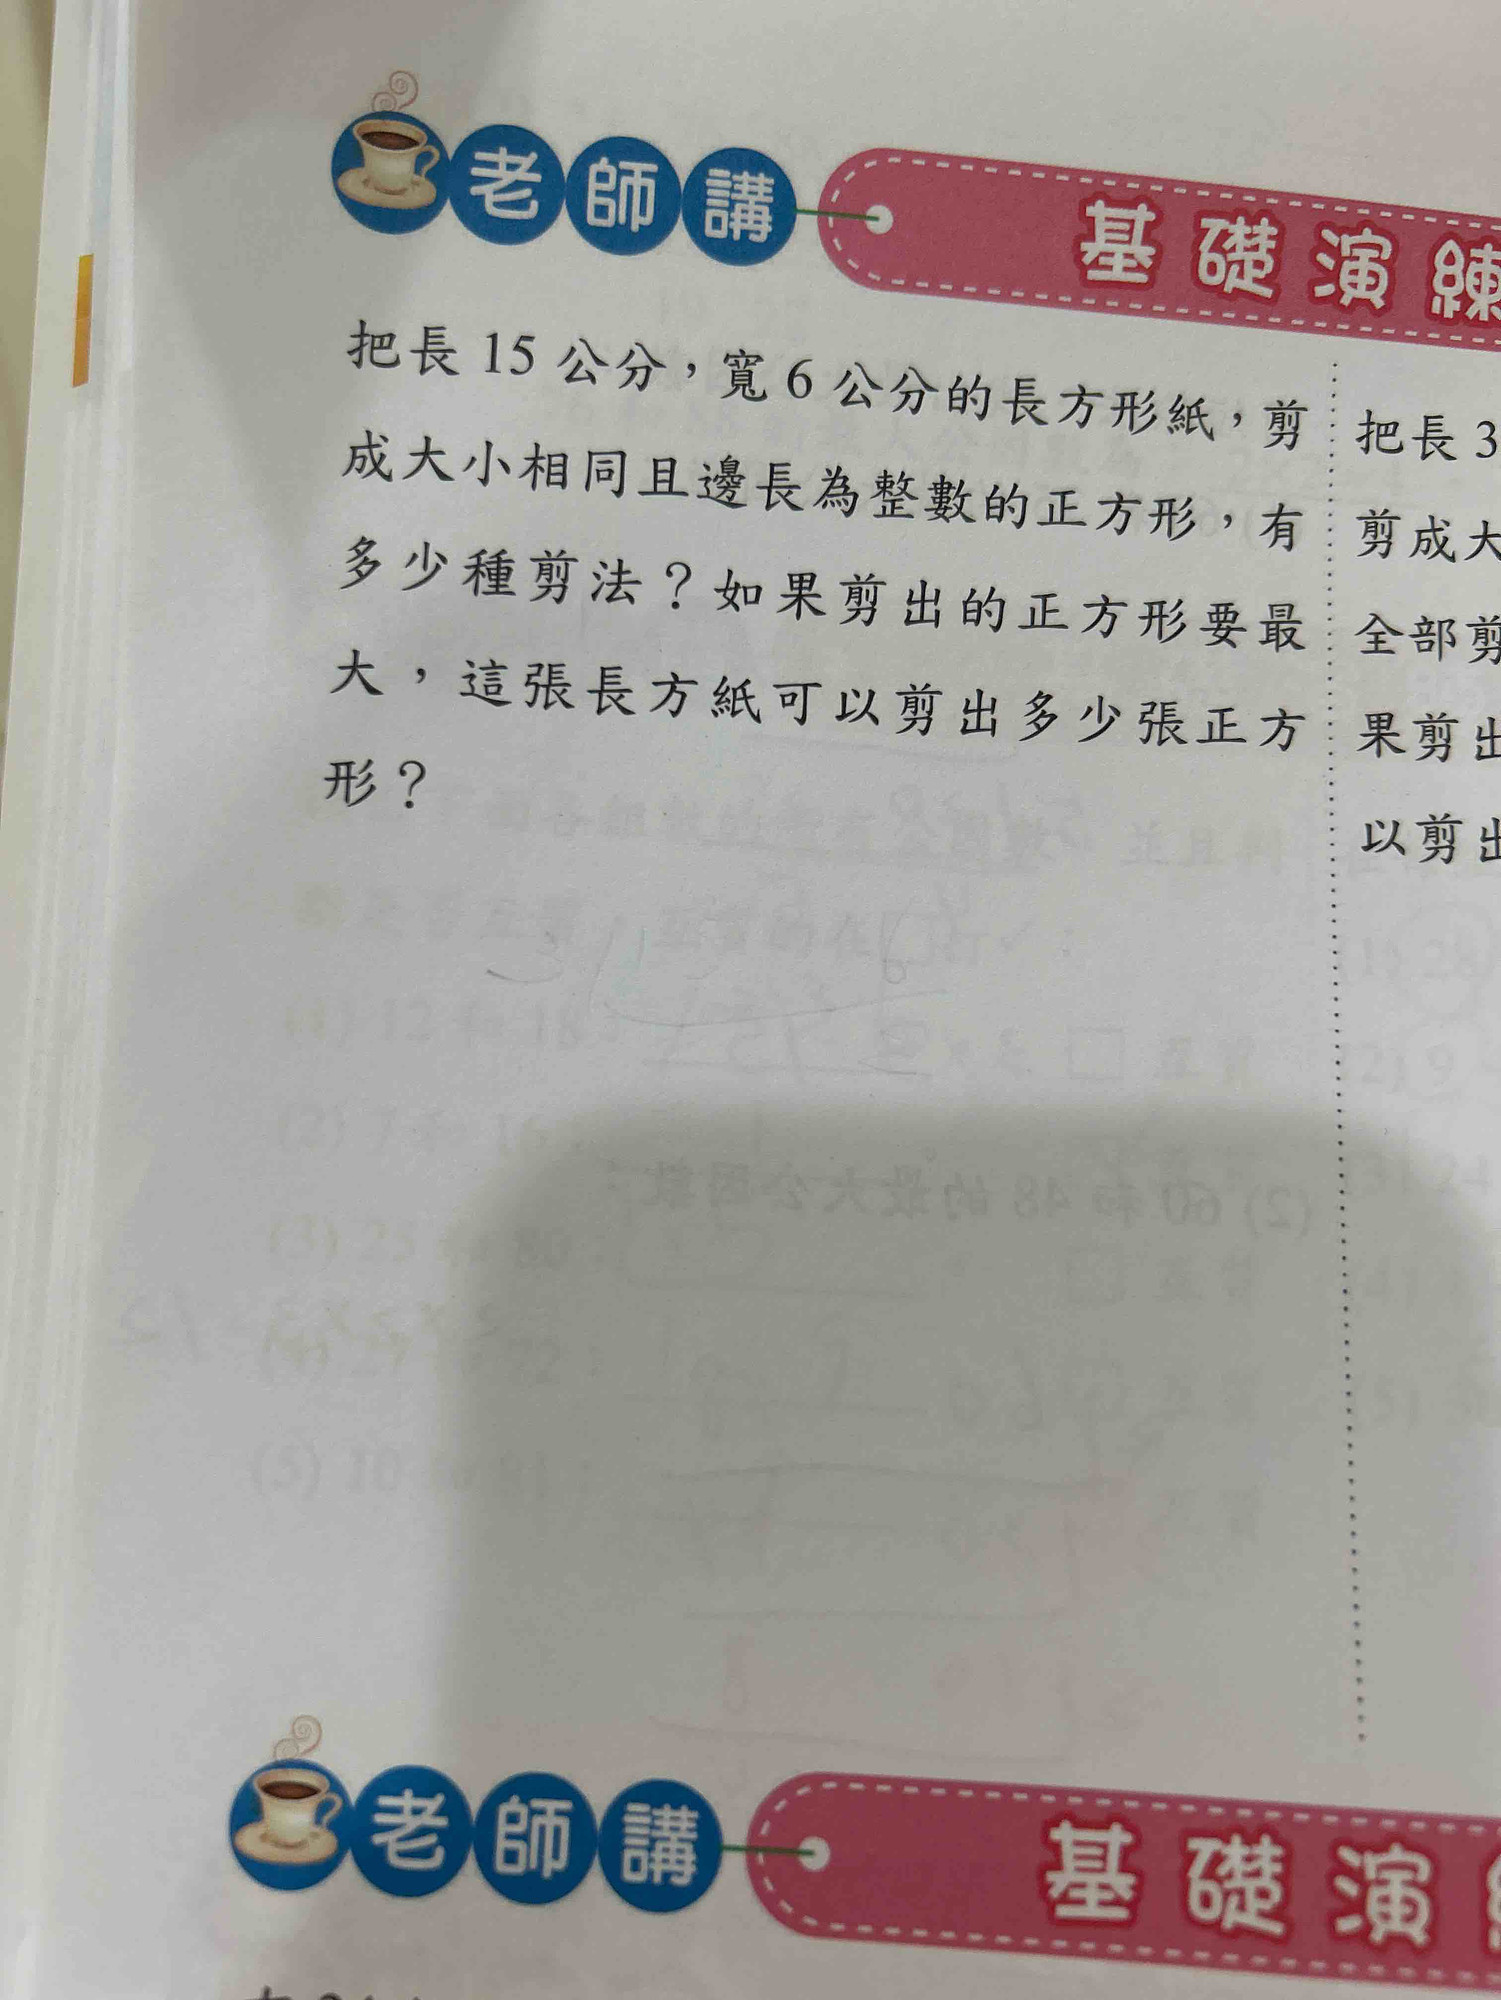 老師講
基礎演練
把長 15 公分，寬 6 公分的長方形紙，剪
成大小相同且邊長為整數的正方形，有
多少種剪法？如果剪出的正方形要最
大，這張長方紙可以剪出多少張正方
形？
把長 3
剪成大
全部剪
果剪出
以剪出
(2) 60 和 48 的最大公因數：
老師講
基礎演